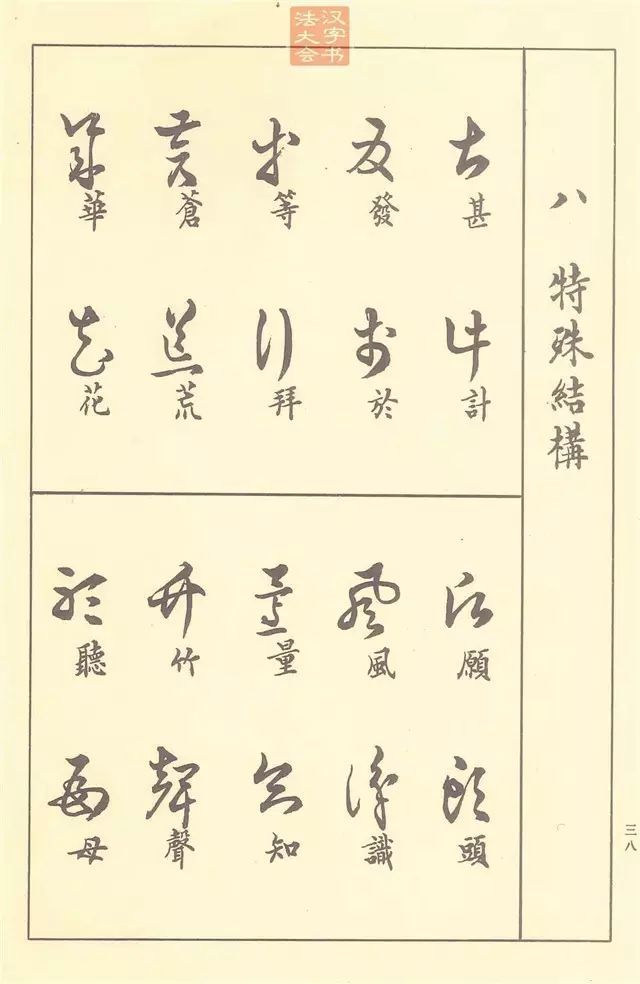 汉字书
法大会
八 特殊結構
甚 計
發 於
等 拜
蒼 荒
華 花
願 頭
風 識
量 知
竹 聲
聽 母
三八